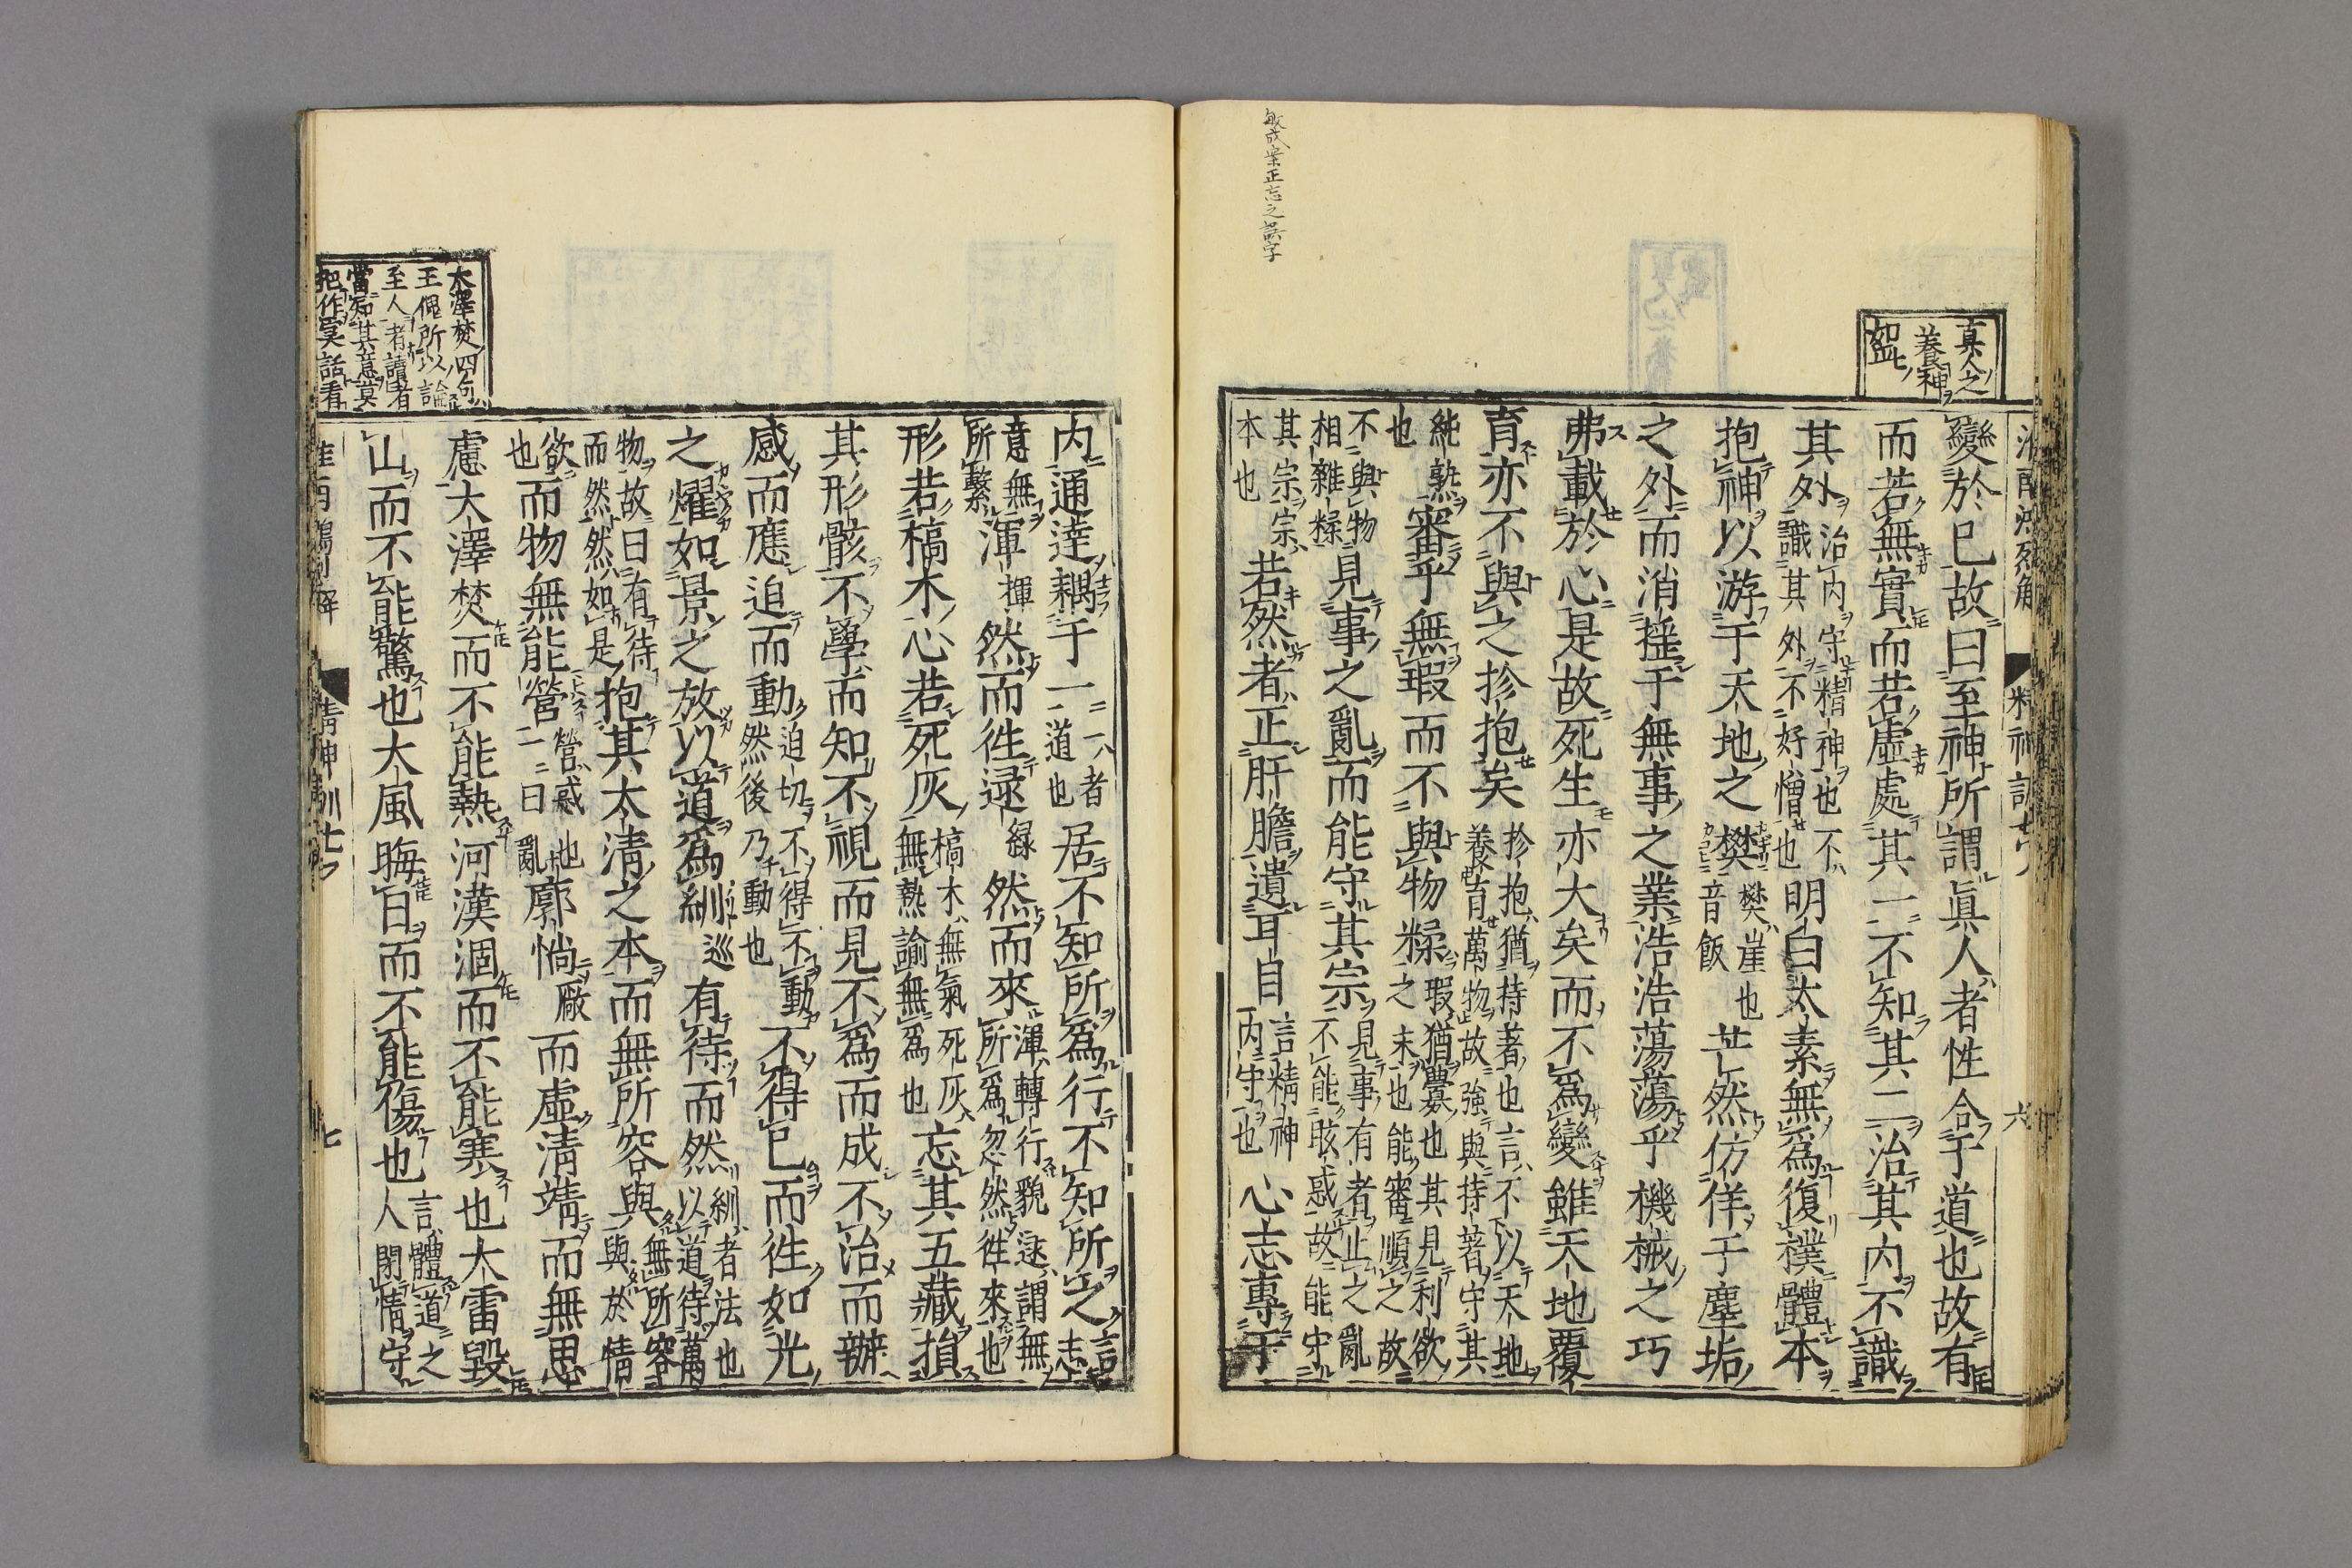 敏成案正忘之誤字
真人之
養神
如此
變於已故曰至神所謂眞人者性合于道也故有
而若無實而若虛處其一不知其二治其内不識
其外治内守精神也不識其外不好憎也明白太素無爲復樸體本
抱神以游于天地之樊樊崖也音飯芒然仿佯于塵垢
之外而消搖于無事之業浩浩蕩蕩乎機械之巧
弗載於心是故死生亦大矣而不爲變雖天地覆
育亦不與之抮抱矣抮抱猶持著也言不以天地養育萬物故強與持著守其
純熟也審乎無瑕而不與物糅瑕猶釁也其見利欲之末也能審順之故
不與物相雜糅見事之亂而能守其宗見事有者止之亂不能眩惑故能守
其宗宗本也若然者正肝膽遺耳目言精神内守也心志專于
内通達耦于一一者道也居不知所爲行不知所之言志
意無所繫渾揮然而徃逯緑然而來渾轉行貌逯謂無所爲忽然徃來也
形若槁木心若死灰槁木無氣死灰無熱諭無爲也忘其五藏損
其形骸不學而知不視而見不爲而成不治而辦
感而應迫而動迫切不得不動然後乃動也不得已而徃如光
之燿如景之放以道爲紃巡有待而然紃者法也以道待萬
物故曰有待而然然如是抱其太清之本而無所容與無所容與於情
欲也而物無能營營惑也一曰亂廓惝廠而虛清靖而無思
慮大澤焚而不能熱河漢涸而不能寒也大雷毀
山而不能驚也大風晦日而不能傷也言體道之人閉情守
大澤焚四句
王倪所以論
至人者讀者
當知其意莫
把作冥話看
精神訓七
七